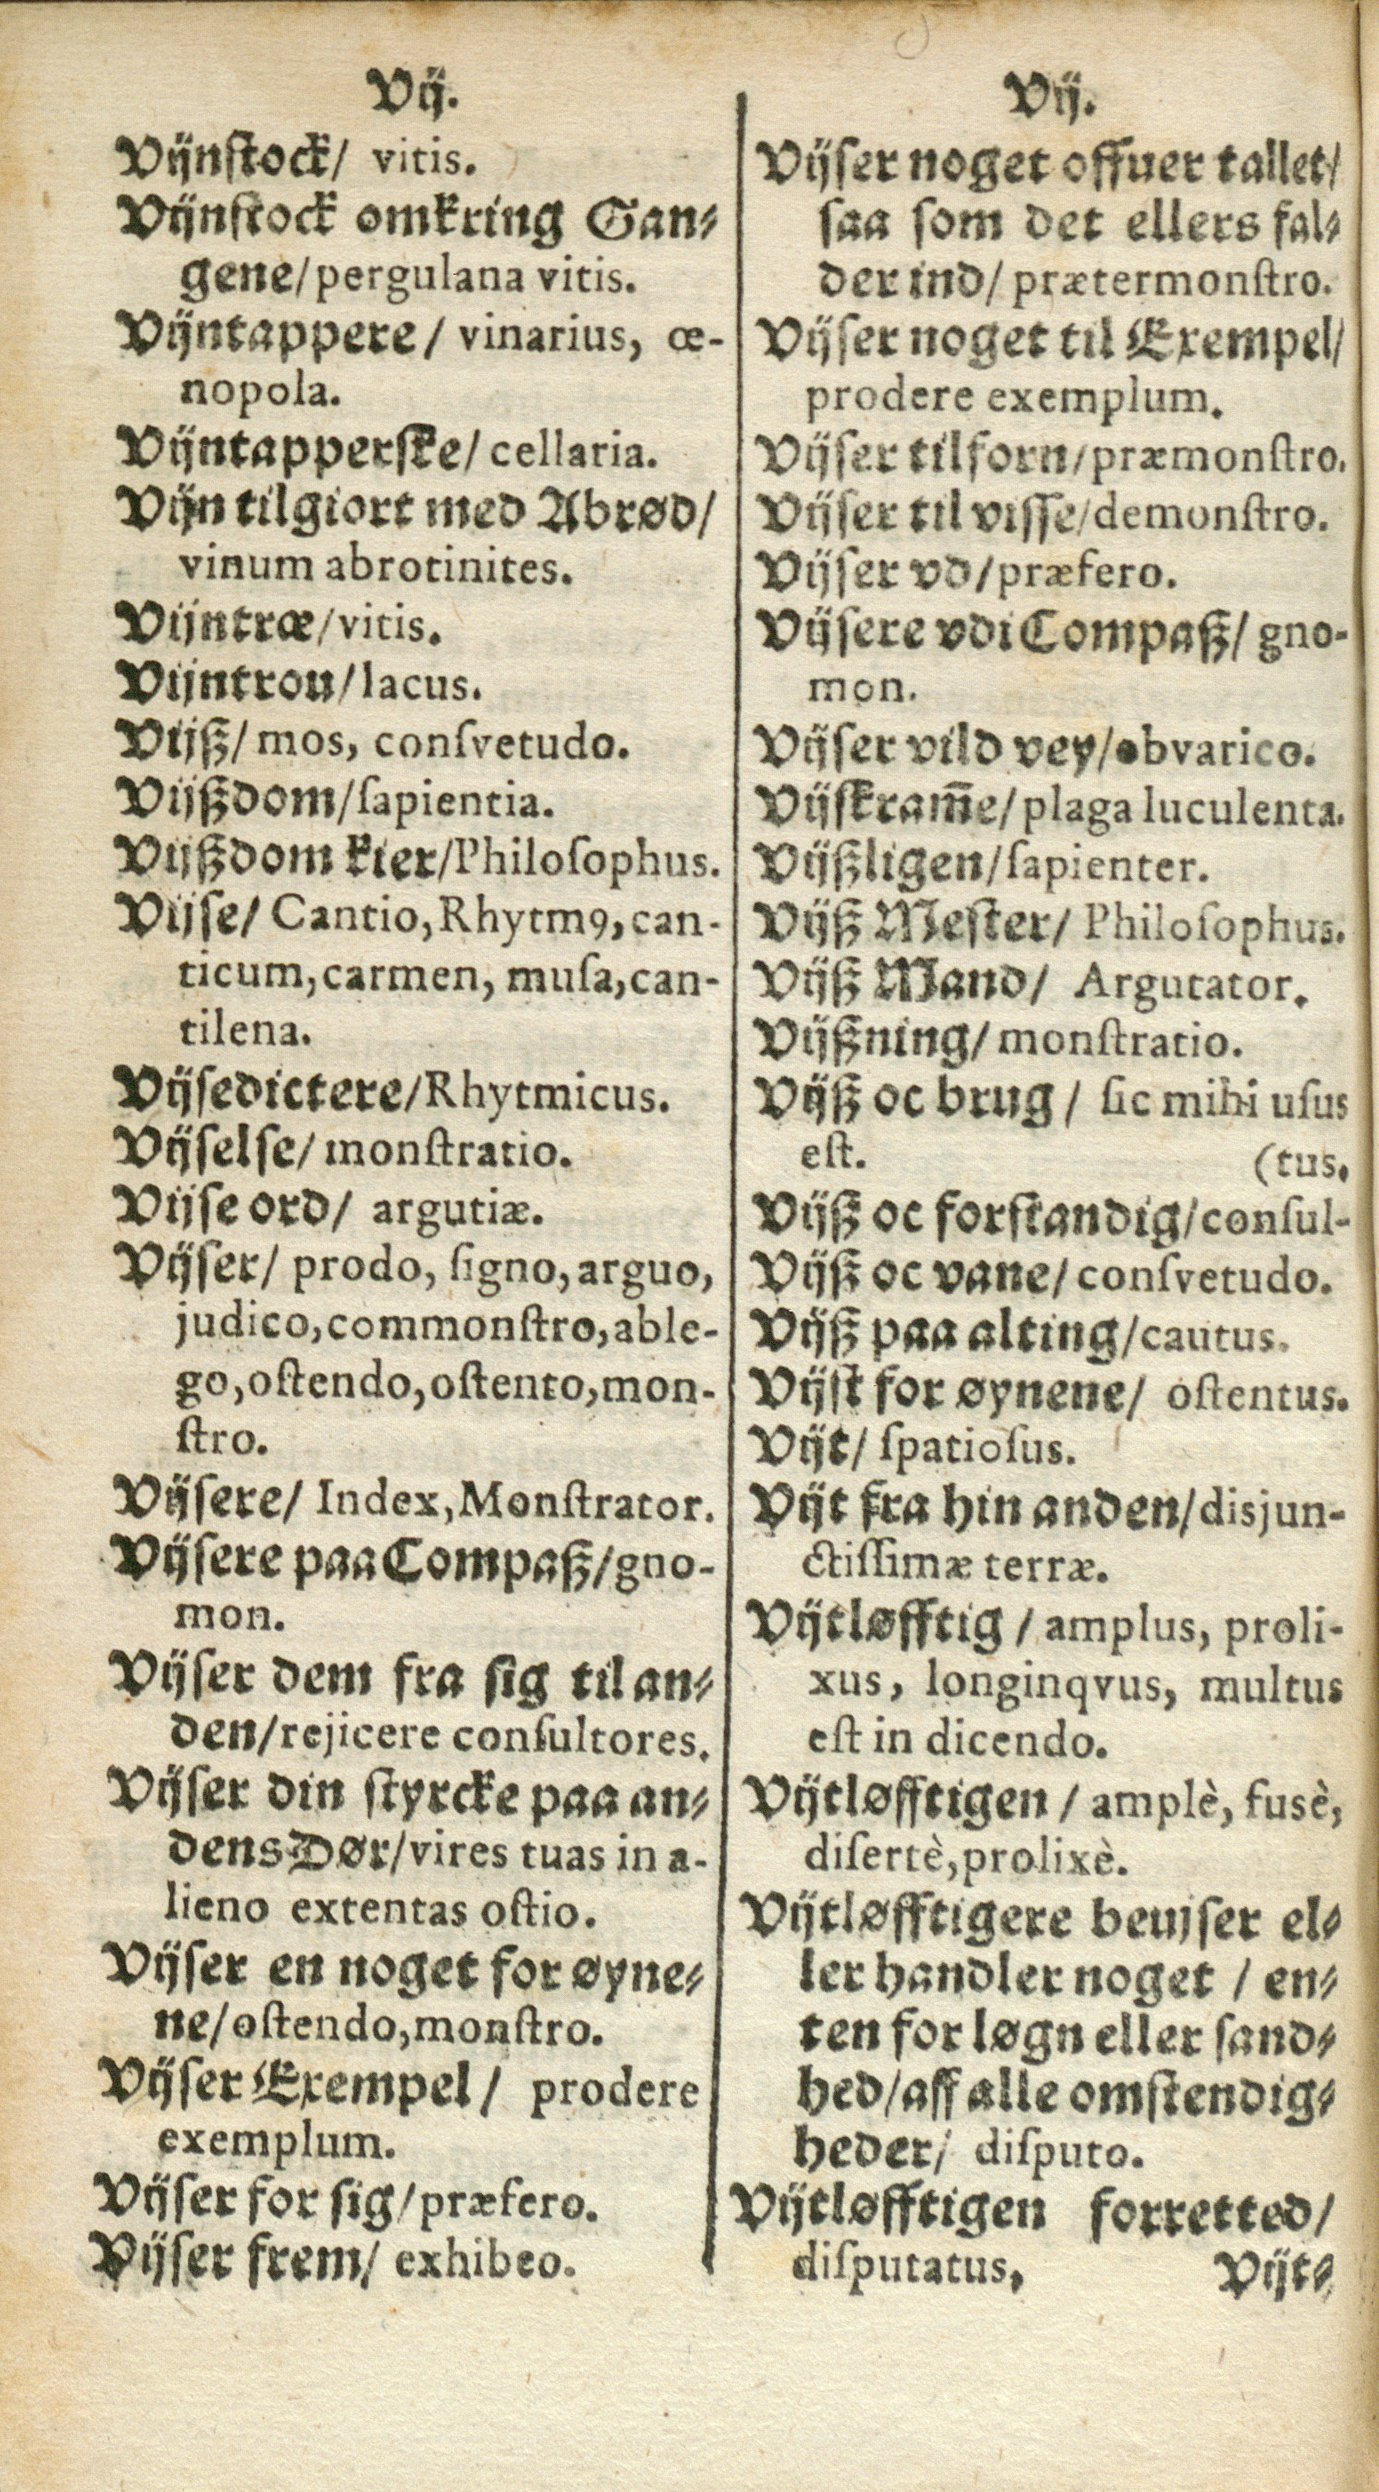 Vĳ.
Vĳnſtock/ vitis.
Vĳnſtock omkring Gan⸗
gene/pergulana vitis.
Vĳntappere/ vinarius, œ-
nopola.
Vĳntapperſke/ cellaria.
Vĳn tilgiort med Abrød/
vinum abrotinites.
Vĳntræ/vitis.
Vĳntrou/lacus.
Vĳß/ mos, conſvetudo.
Vĳßdom/ſapientia.
Vĳßdom kier/Philoſophus.
Vĳſe/ Cantio, Rhytmꝰ, can-
ticum, carmen, muſa, can-
tilena.
Vĳſedictere/Rhytmicus.
Vĳſelſe/ monſtratio.
Vĳſe ord/ argutiæ.
Vĳſer/ prodo, ſigno, arguo,
judico, commonſtro, able-
go, oſtendo, oſtento, mon-
ſtro.
Vĳſere/ Index, Monſtrator.
Vĳſere paa Compaß/gno-
mon.
Vĳſer dem fra ſig til an⸗
den/rejicere conſultores.
Vĳſer din ſtyrcke paa an⸗
dens Dør/vires tuas in a-
lieno extentas oſtio.
Vĳſer en noget for øyne⸗
ne/oſtendo, monſtro.
Vĳſer Exempel/ prodere
exemplum.
Vĳſer for ſig/præfero.
Vĳſer frem/ exhibeo.
Vĳ.
Vĳſer noget offuer tallet/
ſaa ſom det ellers fal⸗
der ind/ prætermonſtro.
Vĳſer noget til Exempel/
prodere exemplum.
Vĳſer tilforn/præmonſtro.
Vĳſer til viſſe/demonſtro.
Vĳſer vd/præfero.
Vĳſere vdi Compaß/ gno-
mon.
Vĳſer vild vey/obvarico.
Vĳſkram̄e/plaga luculenta.
Vĳßligen/ſapienter.
Vĳß Meſter/ Philoſophus.
Vĳß Mand/ Argutator.
Vĳßning/ monſtratio.
Vĳß oc brug/ ſic mihi uſus
eſt. (tus.
Vĳß oc forſtandig/conſul-
Vĳß oc vane/ conſvetudo.
Vĳß paa alting/cautus.
Vĳſt for øynene/ oſtentus.
Vĳt/ ſpatioſus.
Vĳt fra hin anden/disjun-
ctiſſimæ terræ.
Vĳtløfftig/ amplus, proli-
xus, longinqvus, multus
eſt in dicendo.
Vĳtløfftigen/ amplè, fusè,
diſertè, prolixè.
Vĳtløfftigere beuĳſer el⸗
ler handler noget/ en⸗
ten for løgn eller ſand⸗
hed/aff alle omſtendig⸗
heder/ diſputo.
Vĳtløfftigen forretted/
diſputatus,
Vĳt⸗